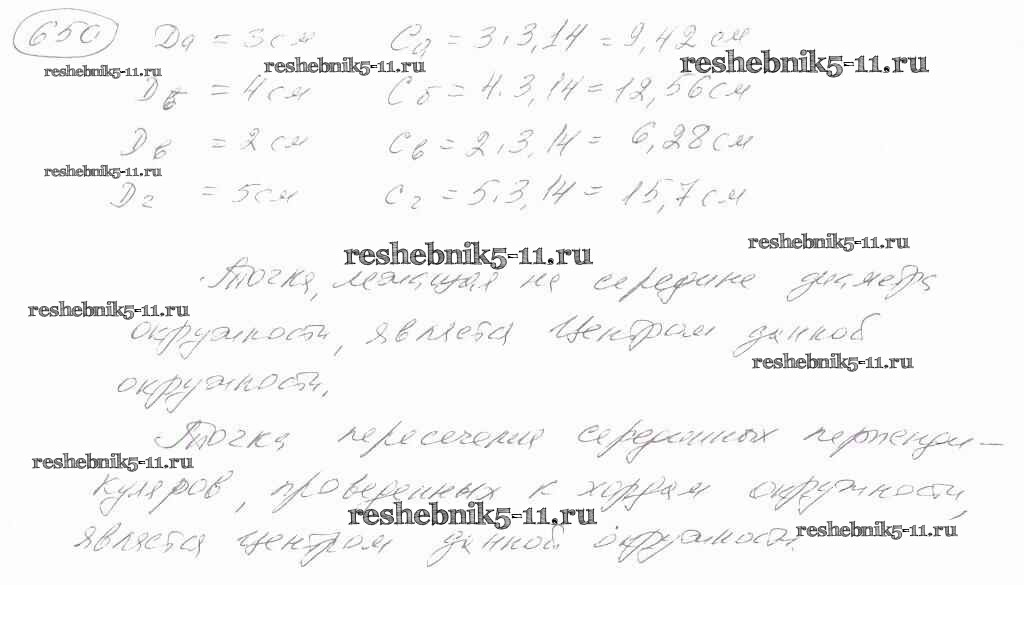 650 Dа = 3см Cа = 3·3,14 = 9,42 см
reshebnik5-11.ru reshebnik5-11.ru reshebnik5-11.ru
Dб = 4см Cб = 4·3,14 = 12,56 см
Dв = 2 см Cв = 2·3,14 = 6,28 см
reshebnik5-11.ru
Dг = 5 см Cг = 5·3,14 = 15,7 см
reshebnik5-11.ru reshebnik5-11.ru
Точка, лежащая на середине диаметра
reshebnik5-11.ru
окружности, является центром данной
reshebnik5-11.ru
окружности.
Точка пересечения серединных перпенди-
reshebnik5-11.ru
куляров, проведенных к хордам окружности,
reshebnik5-11.ru reshebnik5-11.ru
является центром данной окружности.